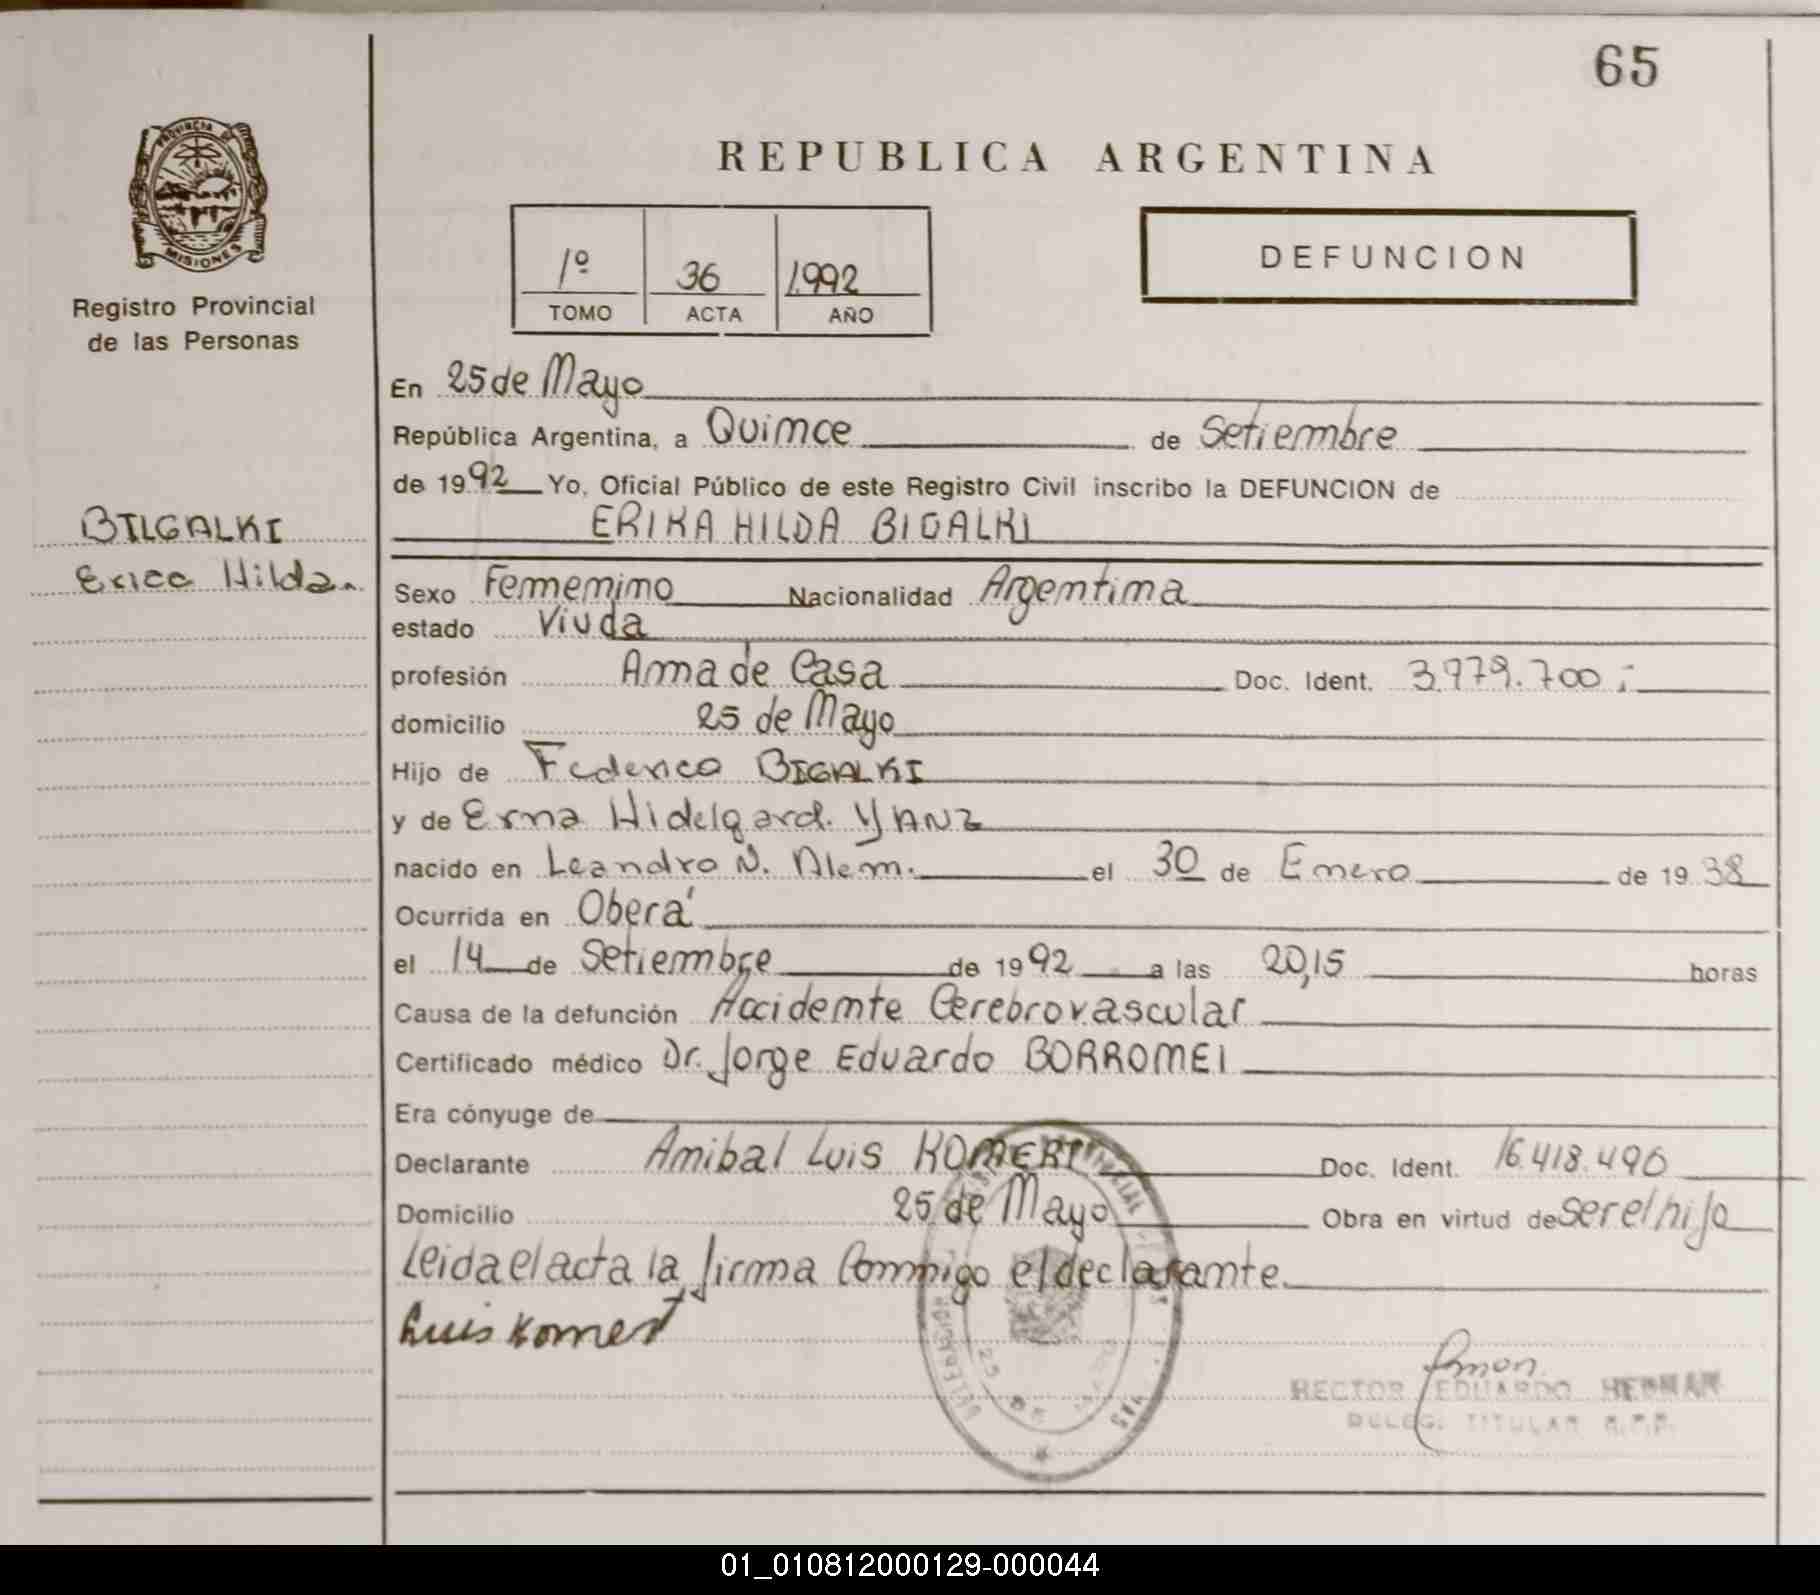 65
REPUBLICA ARGENTINA
PROVINCIA DE
MISIONES
Registro Provincial
de las Personas
1º 36 1.992
TOMO ACTA AÑO
DEFUNCION
En 25 de Mayo
República Argentina, a Quince de Setiembre
de 1992 Yo, Oficial Público de este Registro Civil inscribo la DEFUNCION de
ERIKA HILDA BIGALKI
BILGALKI
Erica Hilda
Sexo Femenino Nacionalidad Argentina
estado Viuda
profesión Ama de Casa Doc. Ident. 3.979.700.-
domicilio 25 de Mayo
Hijo de Federico BIGALKI
y de Erna Hidelgard. YANZ
nacido en Leandro N. Alem. el 30 de Enero de 1938
Ocurrida en Oberá
el 14 de Setiembre de 1992 a las 20,15 horas
Causa de la defunción Accidente Cerebrovascular
Certificado médico Dr. Jorge Eduardo BORROMEI
Era cónyuge de
Declarante Anibal Luis KOMERT Doc. Ident. 16.418.490
Domicilio 25 de Mayo Obra en virtud de ser el hijo
Leida el acta la firma Conmigo el declarante.
Luis Komert
HECTOR EDUARDO
DELEG. TITULAR R.P.P.
25 DE MAYO
01_010812000129-000044